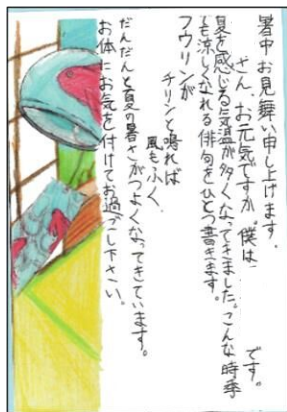 暑中お見舞い申し上げます。
さん、お元気ですか。僕は です。
夏を感じる気温が多くなってきました。こんな時季
でも涼しくなれる俳句をひとつ書きます。
フウリンが
チリンと鳴れば
風もふく
だんだんと夏の暑さがつよくなってきています。
お体にお気を付けてお過ごし下さい。